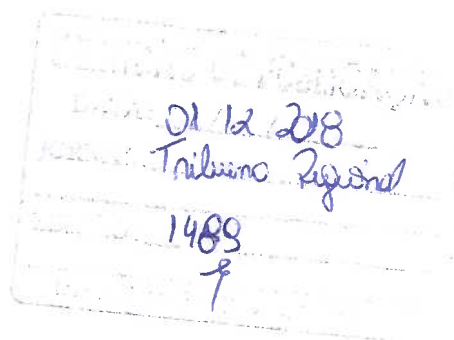 01 12 2018
Tribuna Regional
1489